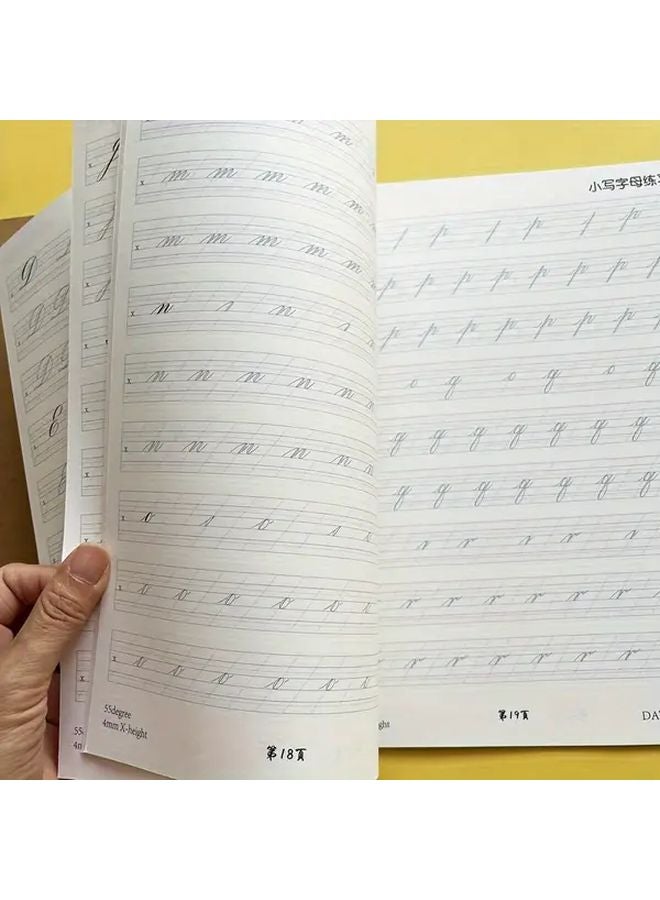 D
D D
D D
E
m
x m m m m m
x m m m m m
x n n
x n n n n n
x n n n n n
x o o
x o o o o o o
x o o o o o
55degree
4mm X-height
第18頁
小写字母练
p p p
p p p p p p p
p p p p p p p
o q o q o q
q q q q q q q
q q q q q q q
r r r
r r r r r r r
r r r r r r
ght
第19頁
DA